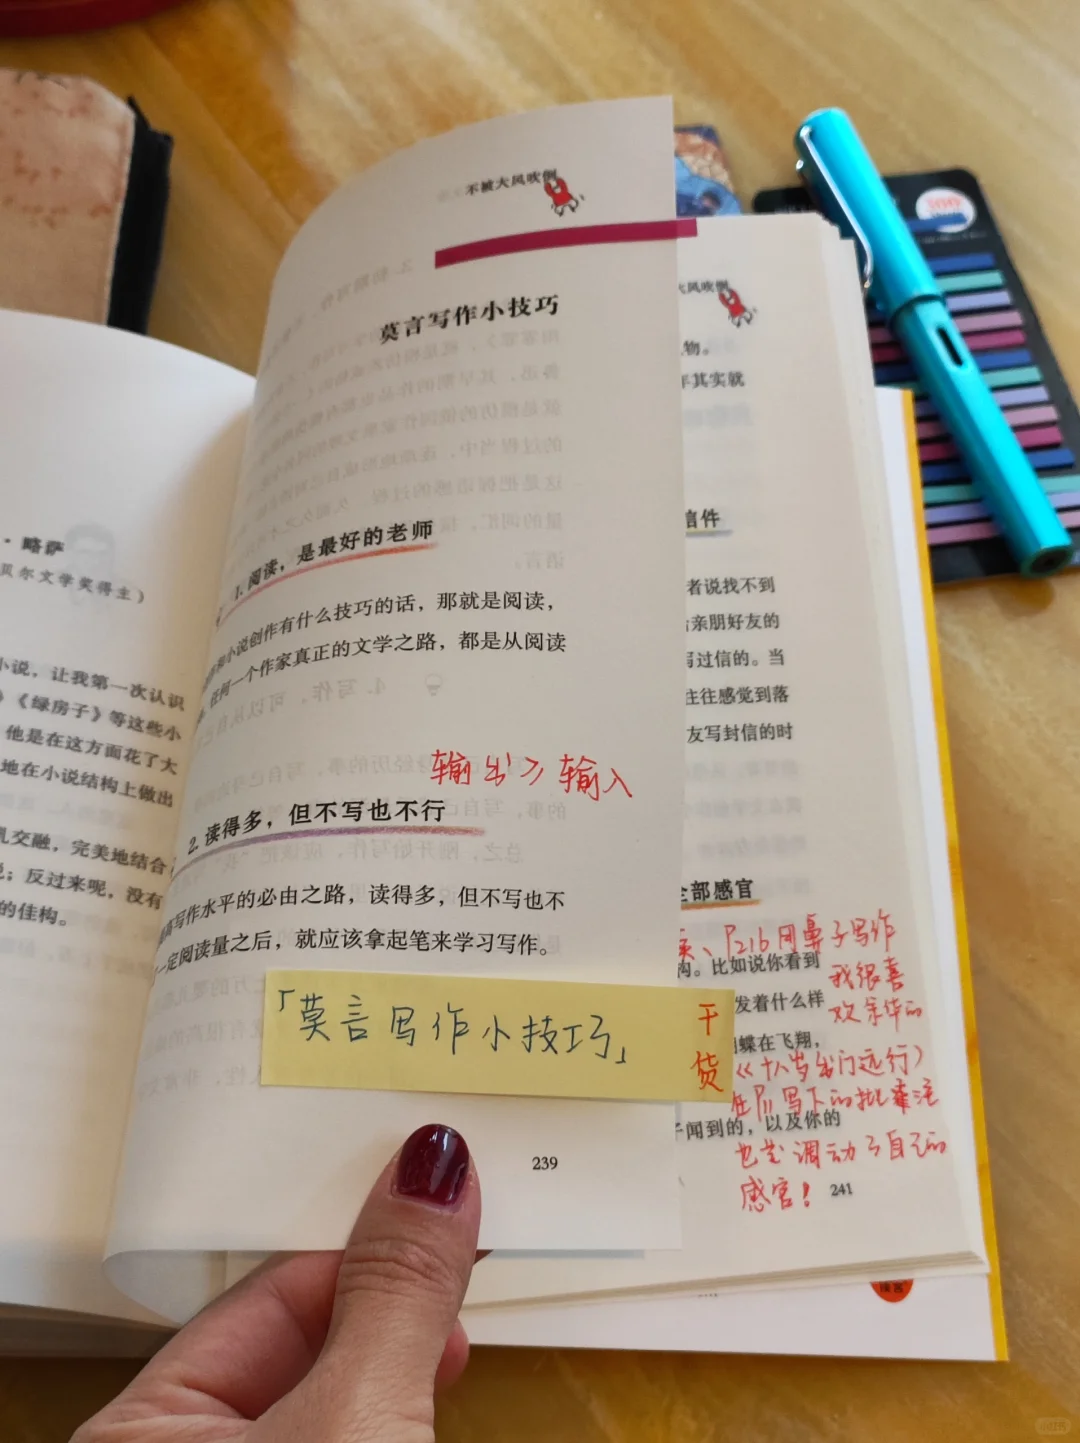 · 略萨
贝尔文学奖得主）
小说，让我第一次认识
》《绿房子》等这些小
他是在这方面花了大
地在小说结构上做出
乳交融，完美地结合
说；反过来呢，没有
的佳构。
不被大风吹倒
莫言写作小技巧
1. 阅读，是最好的老师
和小说创作有什么技巧的话，那就是阅读，
任何一个作家真正的文学之路，都是从阅读
输出≥输入
2. 读得多，但不写也不行
高写作水平的必由之路，读得多，但不写也不
一定阅读量之后，就应该拿起笔来学习写作。
「莫言写作小技巧」
干货
239
大风吹倒
物。
年其实就
信件
者说找不到
给亲朋好友的
写过信的。当
往往感觉到落
友写封信的时
全部感官
P216用鼻子写作
构。比如说你看到
我很喜
发着什么样
欢余华的
蝴蝶在飞翔，
《十八岁出门远行》
在P11写下的批注
子闻到的，以及你的
也是调动了自己的
感官！
241